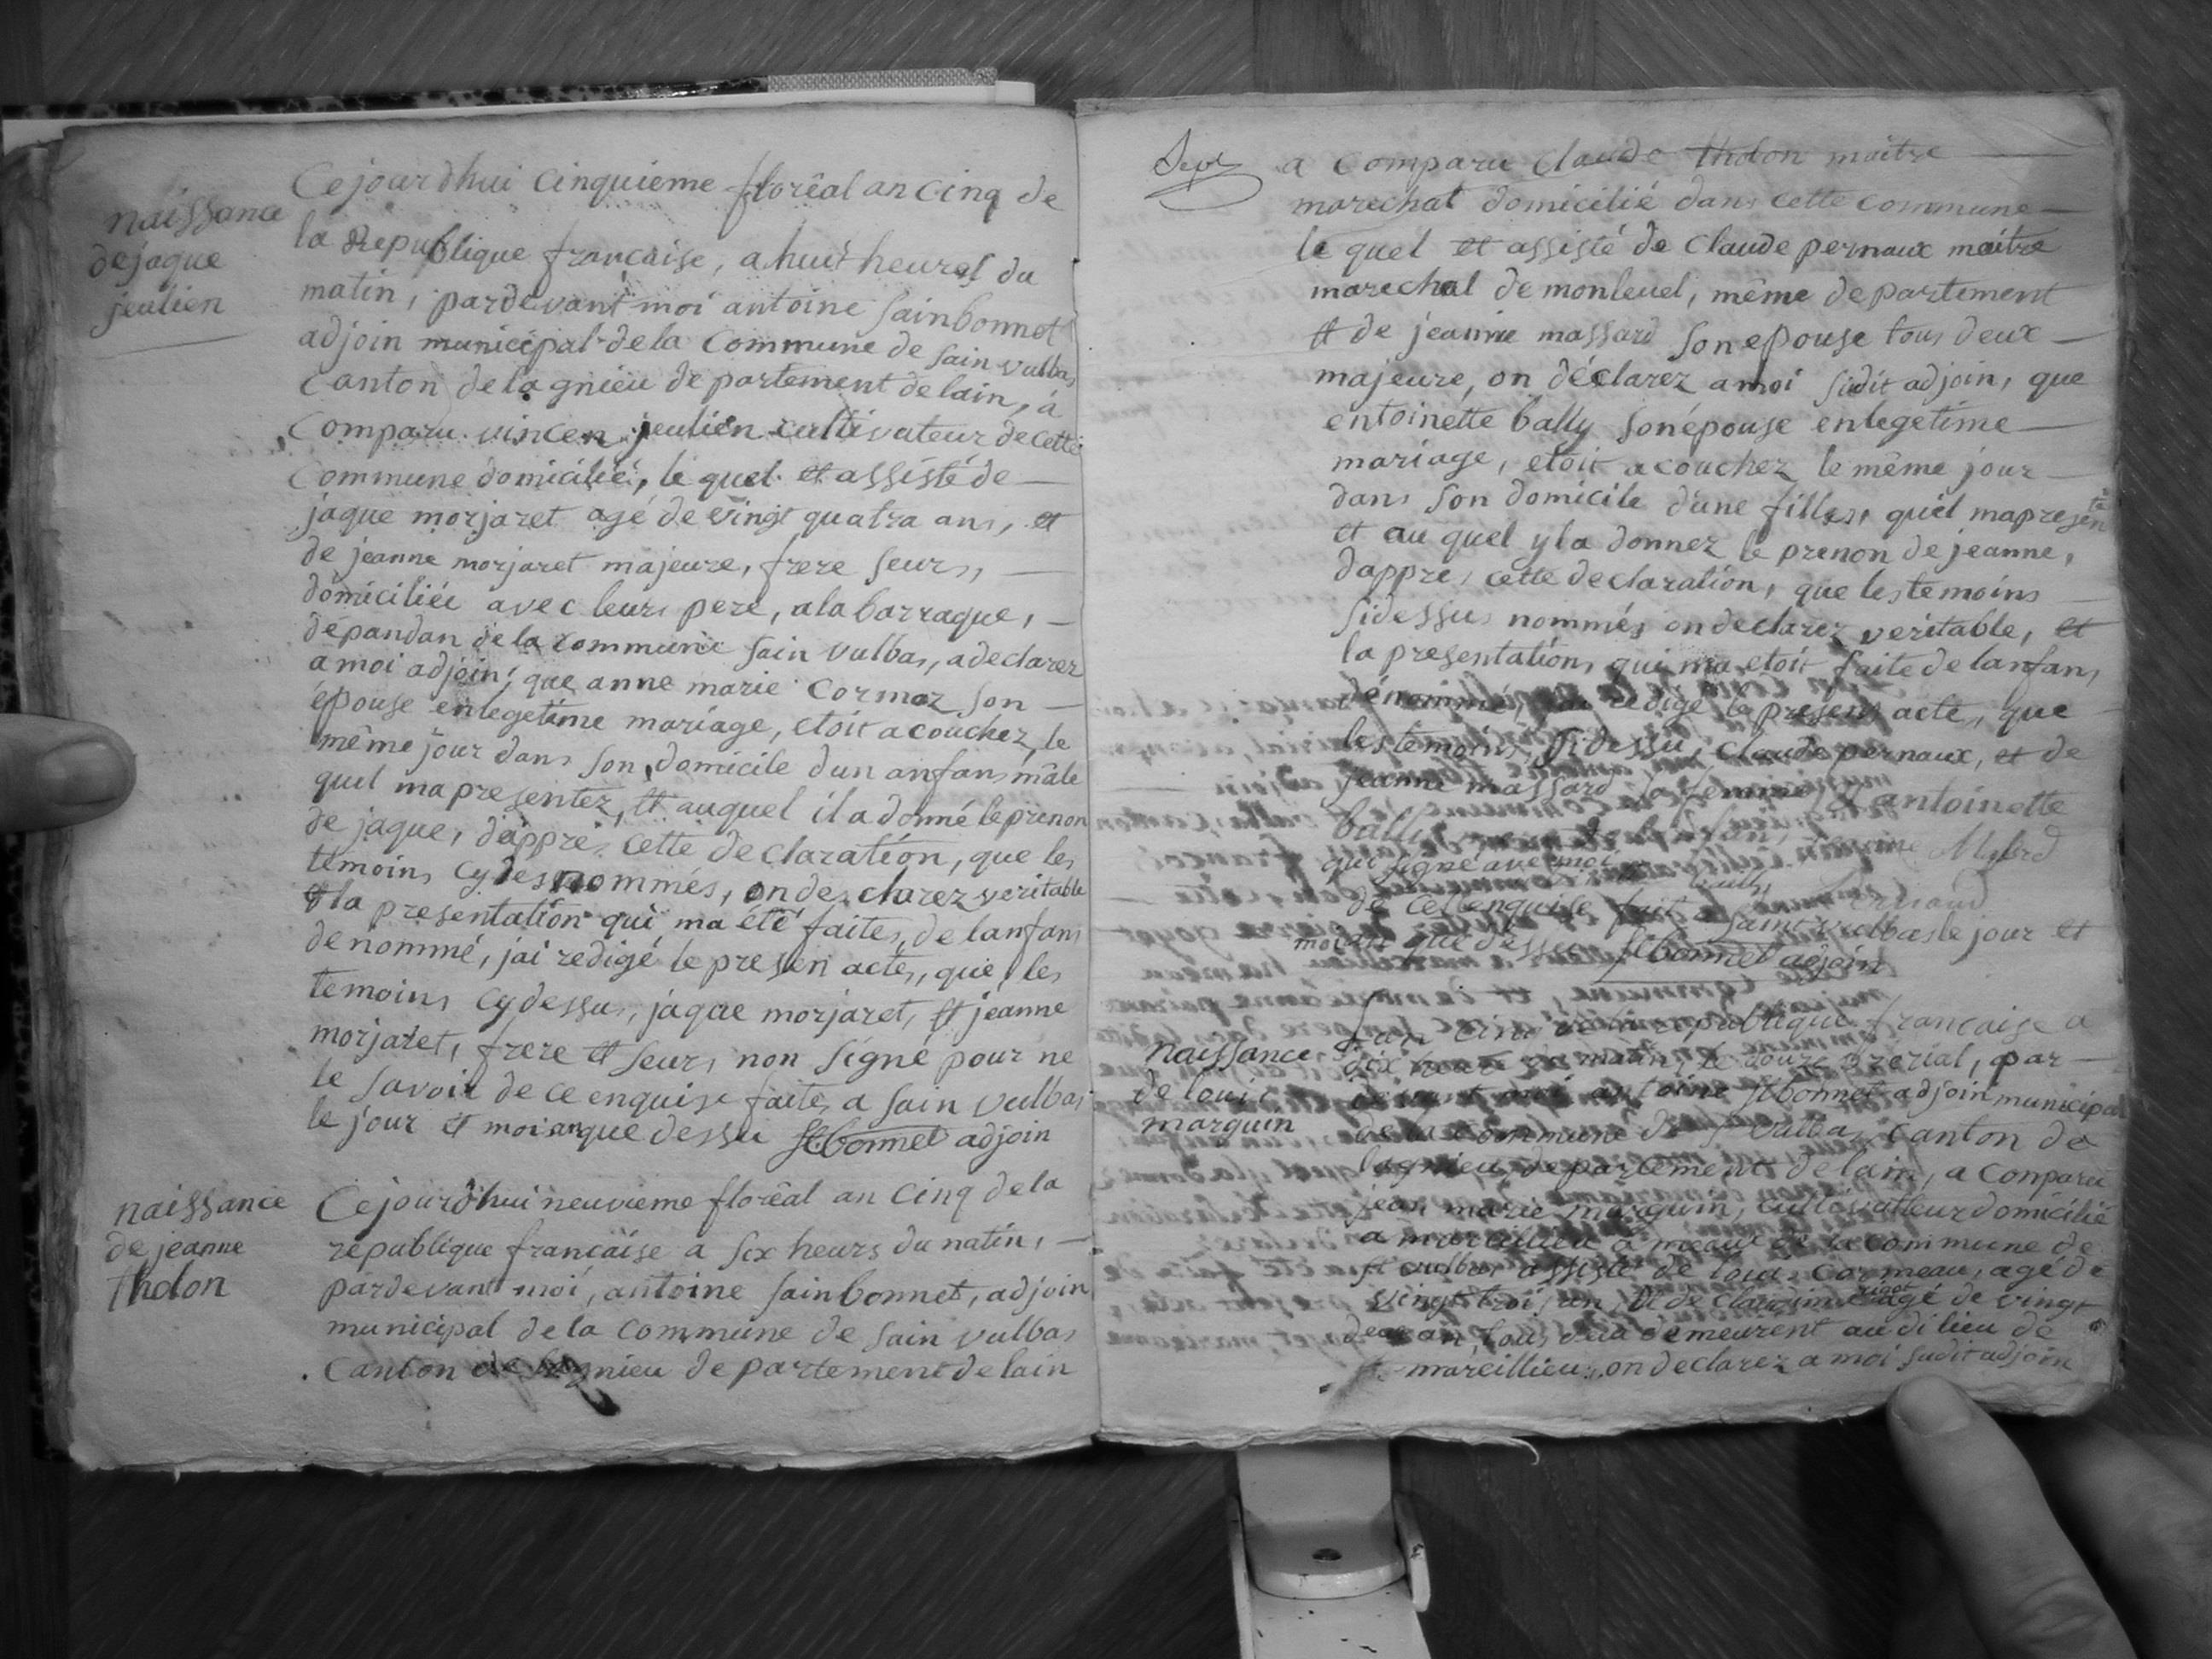 naissance
de jaque
jeulien
Cejourdhui cinquieme florêal an cinq de
la republique francaise, a huit heures du
matin, pardevant moi antoine sainbonnet
adjoin municipal de la Commune de sain vulbas
Canton de lagnieu departement de lain, à
Comparu vincen jeulien cultivateur de cette
Commune domicilié, le quel et assisté de
jaque morjaret agé de vingt quatra ans, et
de jeanne morjaret majeure, frere seurs,
domiciliée avec leurs pere, a la barraque,
dépandan de la commune sain vulbas, a declarez
a moi adjoin, que anne marie Cormoz son
épouse enlegetime mariage, etoit acouchez, le
même jour dans son domicile dun anfans mâle
quel ma presentez, et auquel il a donné le prenon
de jaque, dappres cette declaration, que les
temoins cydesnommés, on desclarez veritable
et la presentation qui ma été faites, de lanfans
denommé, jai redigé le presen actes, que les
temoins cydessus, jaque morjaret, et jeanne
morjaret, frere et seurs non signé pour ne
le savoir de ce enquise faites a sain vulbas
le jour et moi an que dessu Stbonnet adjoin
naissance
de jeanne
tholon
Cejourdhui neuvieme florêal an cinq dela
republique francaise a six heurs du natin,
pardevant moi, antoine sainbonnet, adjoin
municipal de la Commune de sain vulbas
Canton de lagnieu departement de lain
Sept
a Comparu Claude tholon maitre
marechal domicilié dans cette commune
le quel et assisté de Claude pernaux maitre
marechal de monleuel, même departement
et de jeanne massard son epouse tous deux
majeure, on déclarez a moi sudit adjoin, que
entoinette bally son épouse enlegetime
mariage, etoit acouchez le même jour
dans son domicile dune filles, quil mapresenta
et au quel y la donnez le prenon de jeanne,
dappres cette declaration, que les temoins
sidessus nommés on declarez veritable, et
la presentation, qui ma etoit faite de lanfans
dénommé, jai redigé le presens acte, que
les temoins, sidessu, Claude pernaux, et de
jeanne massard sa femme et antoinette
bally
qui signé avec moi
de ce enquise fait a saint vulbas le jour et
moi an que dessu Stbonnet adjoin
naissance
de louis
marguin
Lan cinq de la republique francaise a
dix heure du matin, le douze prerial, par
devant moi antoine Stbonnet adjoin municipal
de la commune de St vulbas canton de
lagnieu, departement de lain, a Conparu
jean marie marguin, cultivatteur domicilié
a marcillieu a meau de la commune de
St vulbas assisté de louis Cormeau, agé de
vingt troi an, et de Claudine agé de vingt
deux an, tous deux demeurent au di lieu de
marcillieu, on declarez a moi sudit adjoin